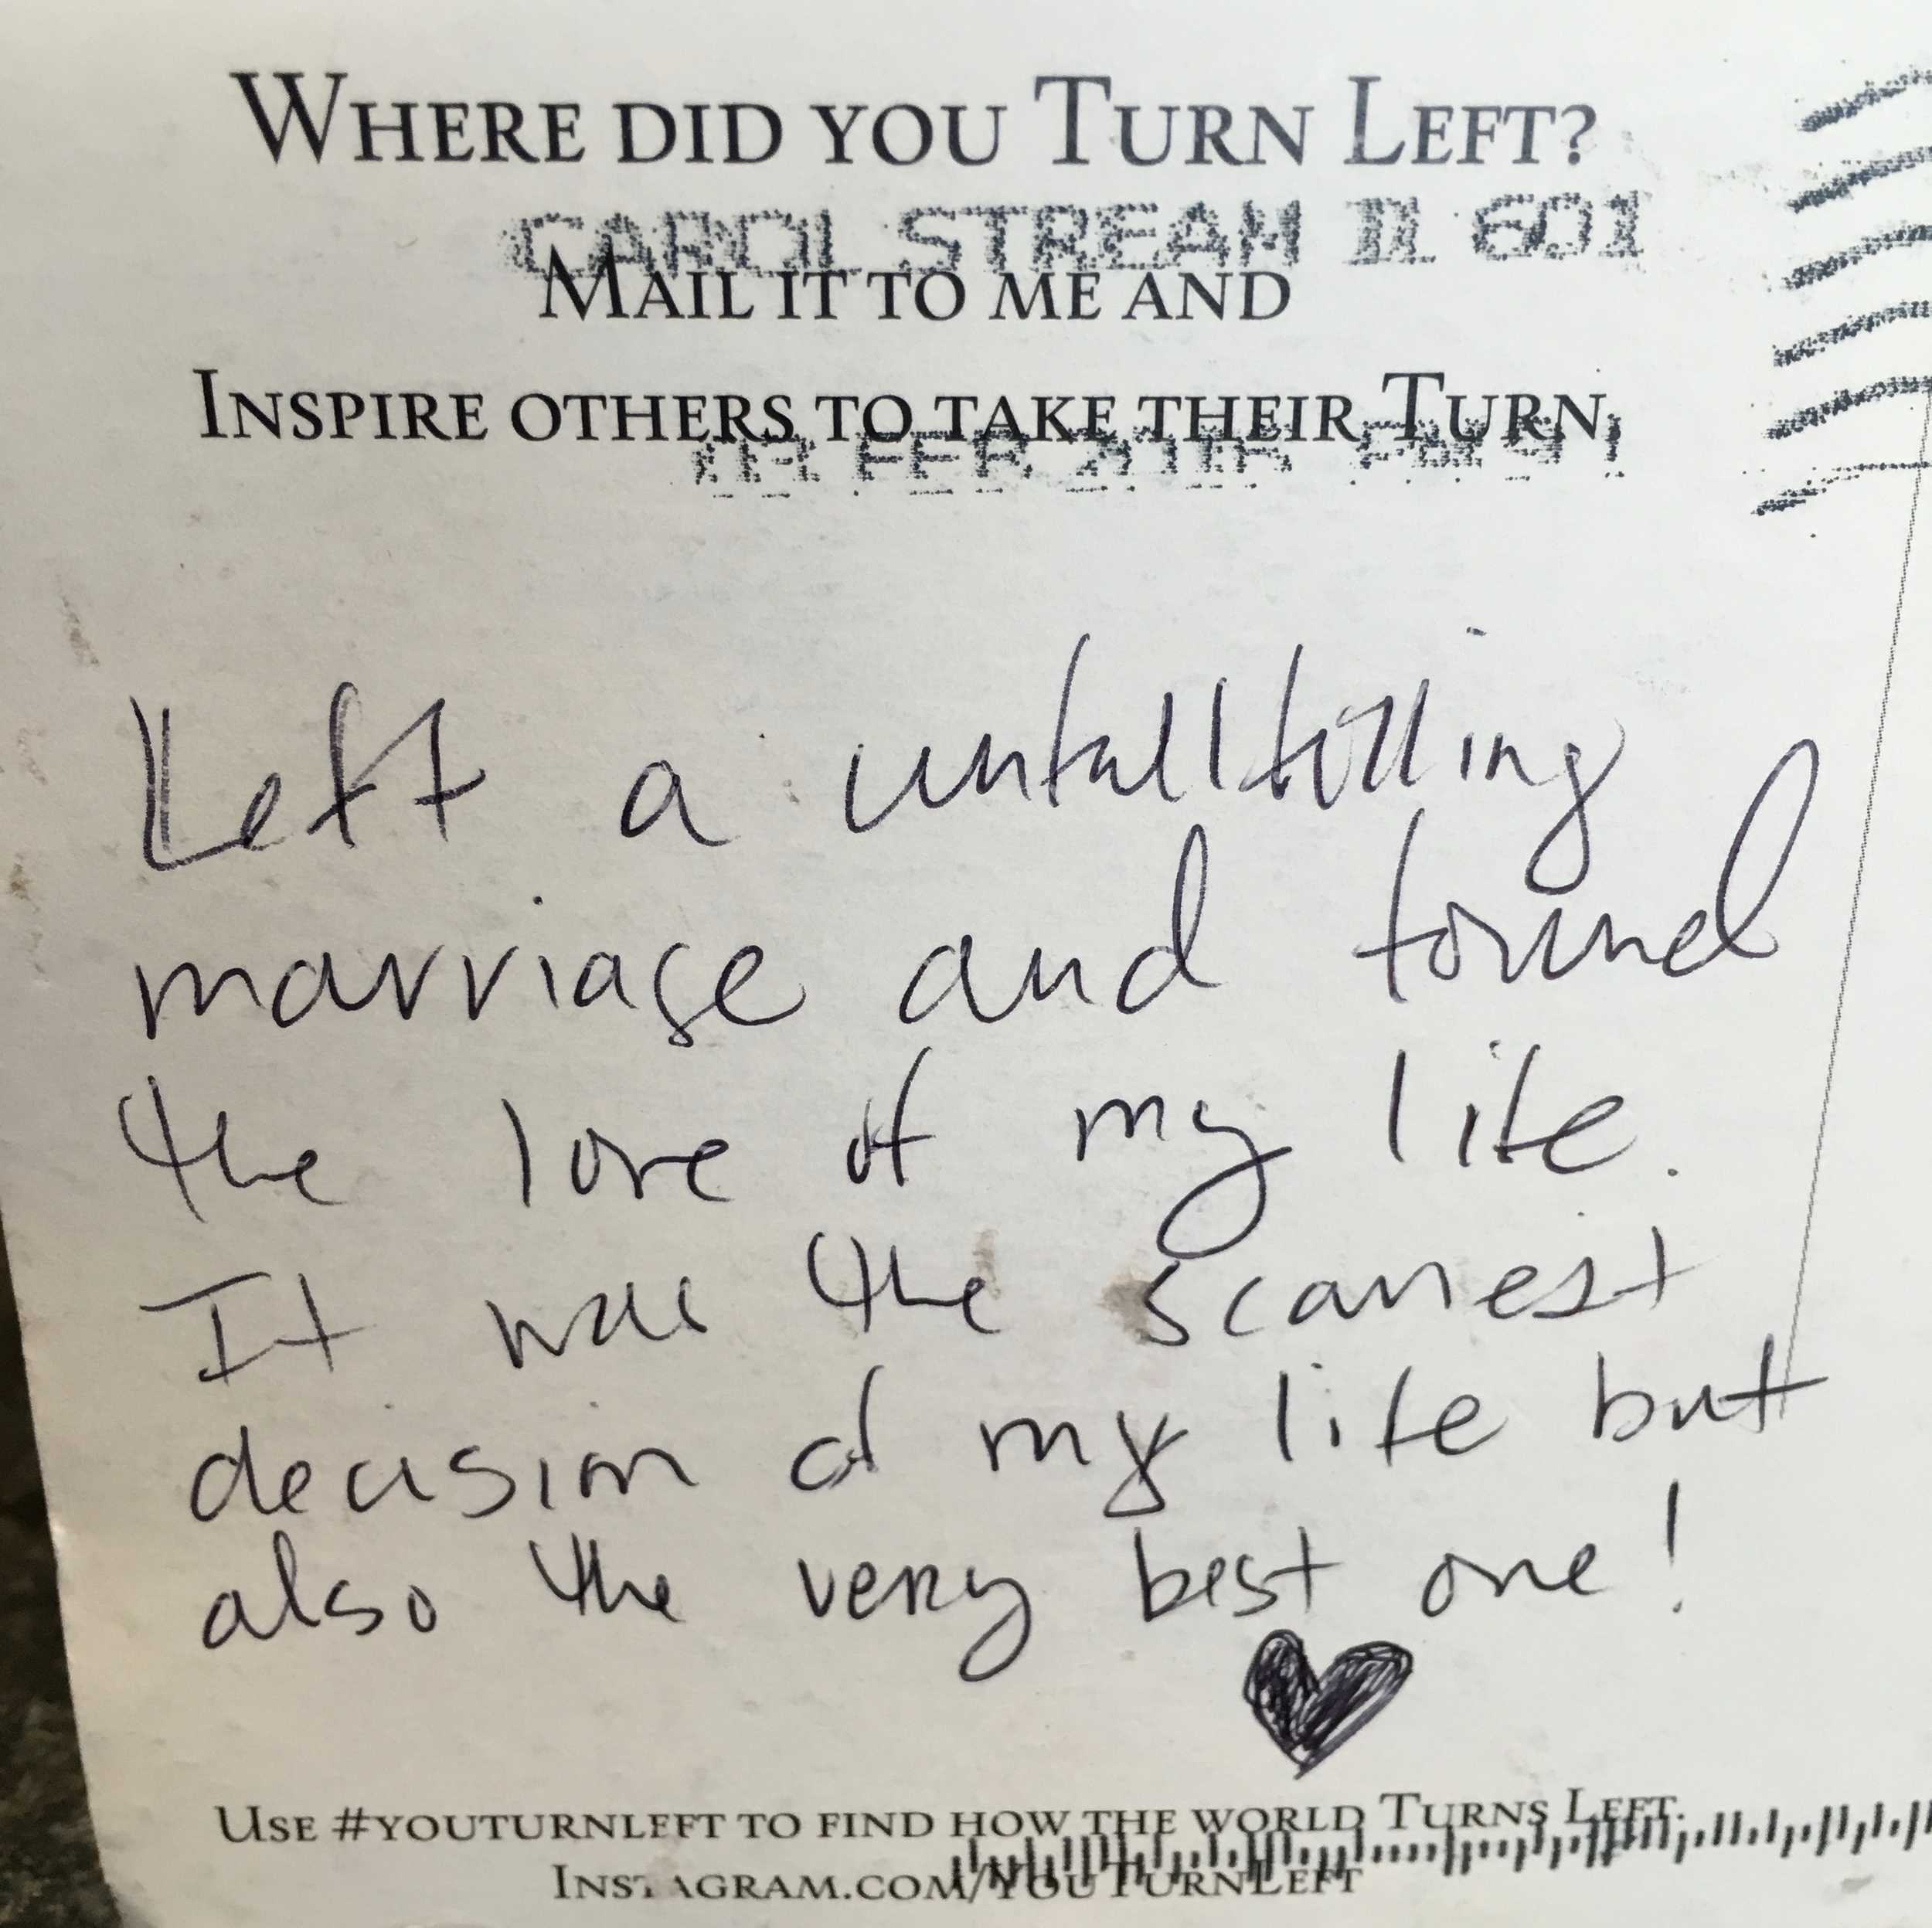 WHERE DID YOU TURN LEFT?
CAROL STREAM IL 601
MAIL IT TO ME AND
INSPIRE OTHERS TO TAKE THEIR TURN
03 FEB 2016 PM
Left a unfullfilling
marriage and found
the love of my life.
It was the scariest
decision of my life but
also the very best one!
USE #YOUTURNLEFT TO FIND HOW THE WORLD TURNS LEFT.
INSTAGRAM.COM/YOUTURNLEFT